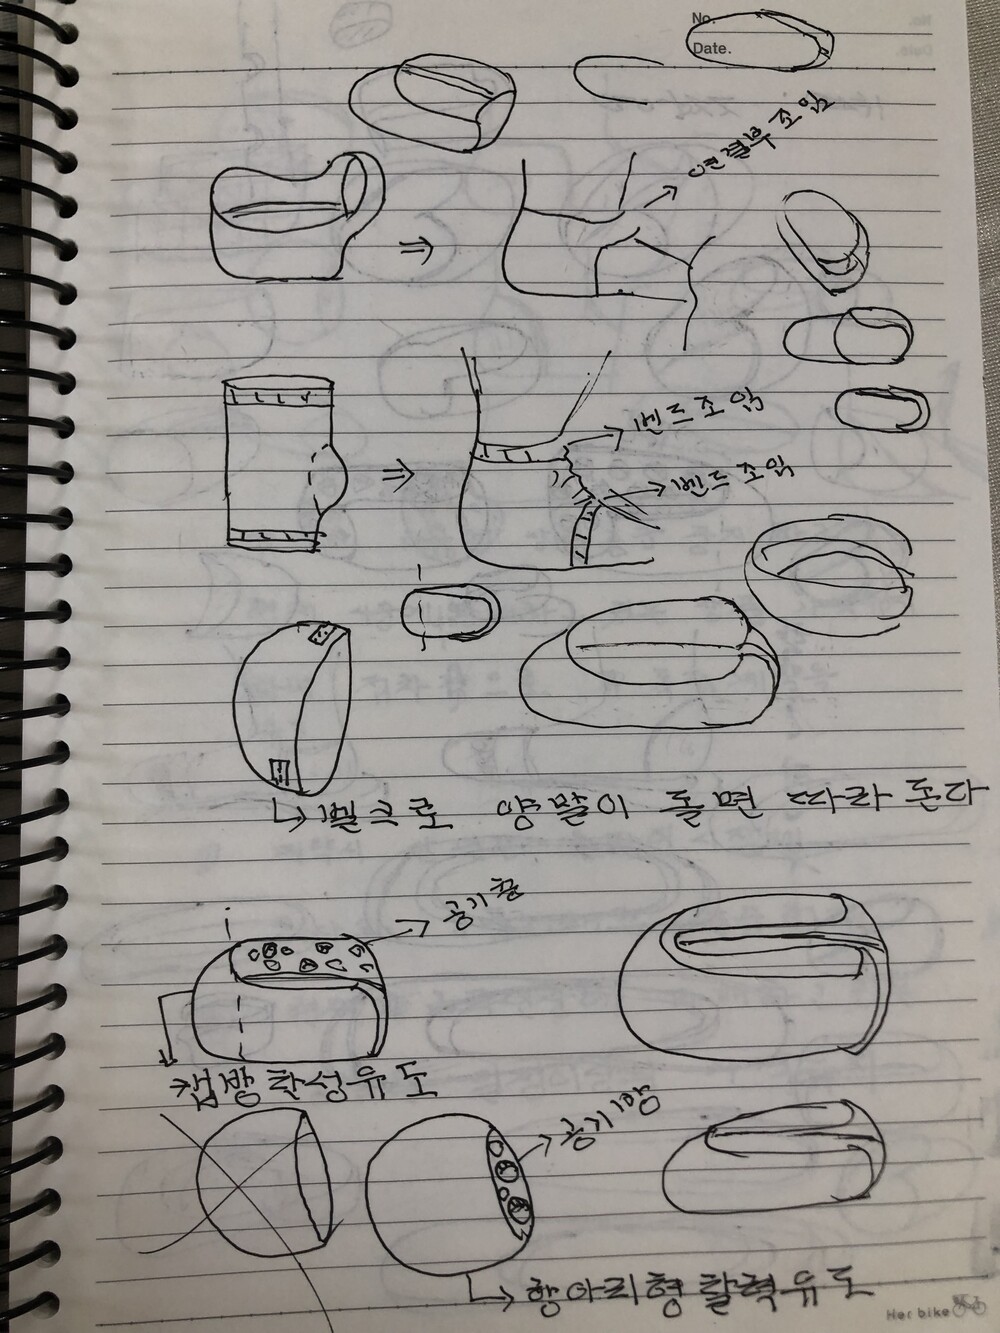 No.
Date.
연결부 조임
밴드조임
밴드조임
벨크로 양말이 돌면 따라 돈다
공기층
찜방활성유도
공기방
항아리형 활력유도
Her bike